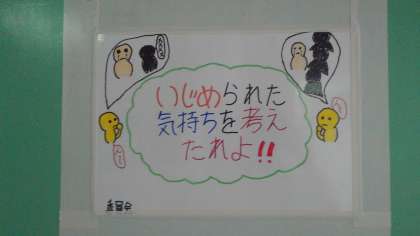 いじめられた
気持ちを考え
たれよ!!